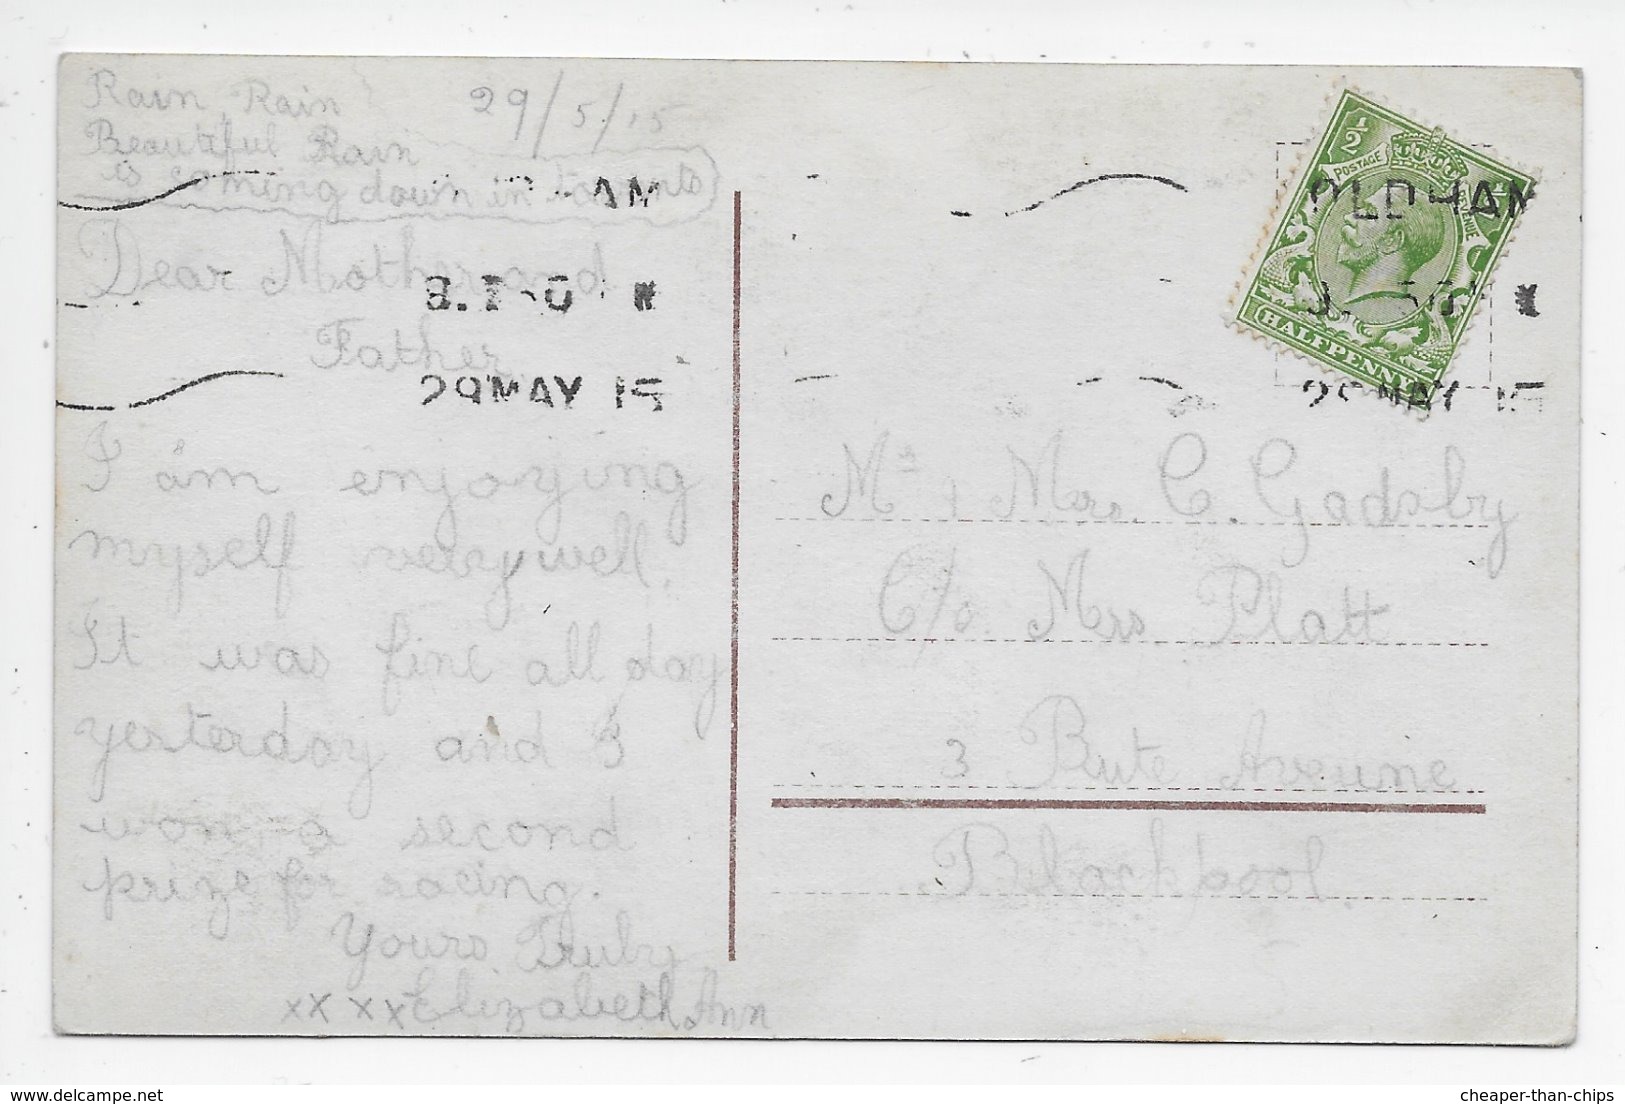 Rain, Rain
29/5/15
Beautiful Rain
is coming down in torrents
Dear Mother and
Father,
I am enjoying
myself very well.
It was fine all day
yesterday and I
won a second
prize for racing.
Yours Truly
xx xx Elizabeth Ann
AM
29 MAY 15
½
POSTAGE
REVENUE
HALFPENNY
OLDHAM
MAY
Mr & Mrs. C. Gadsby
C/o. Mrs Platt
3 Bute Aveune
Blackpool.
delcampe.net
cheaper-than-chips